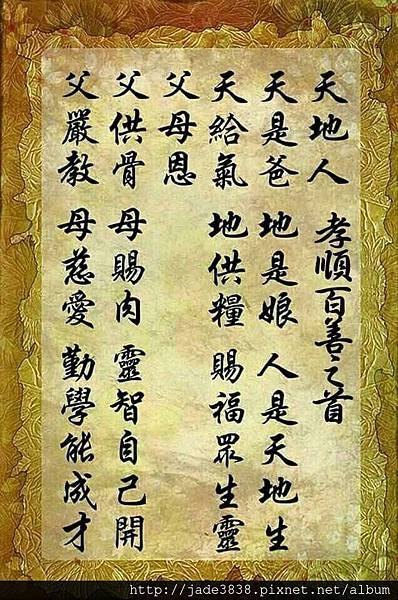 天地人 孝順百善之首
天是爸 地是娘 人是天地生
天給氣 地供糧 賜福眾生靈
父母恩
父供骨 母賜肉 靈智自己開
父嚴教 母慈愛 勤學能成才
http://jade3838.pixnet.net/album